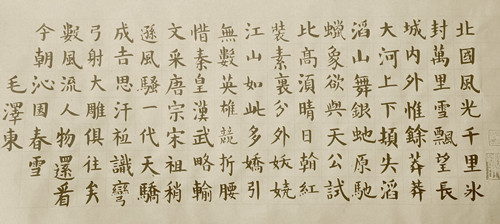 北國風光千里冰
封萬里雪飄望長
城內外惟餘莽莽
大河上下頓失滔
滔山舞銀虵原馳
蠟象欲與天公試
比高須晴日㸔紅
裝素裹分外妖嬈
江山如此多嬌引
無數英雄競折腰
惜秦皇漢武略輸
文采唐宗宋祖稍
遜風騷一代天驕
成吉思汗衹識彎
弓射大雕俱往矣
數風流人物還看
今朝沁園春雪
毛澤東